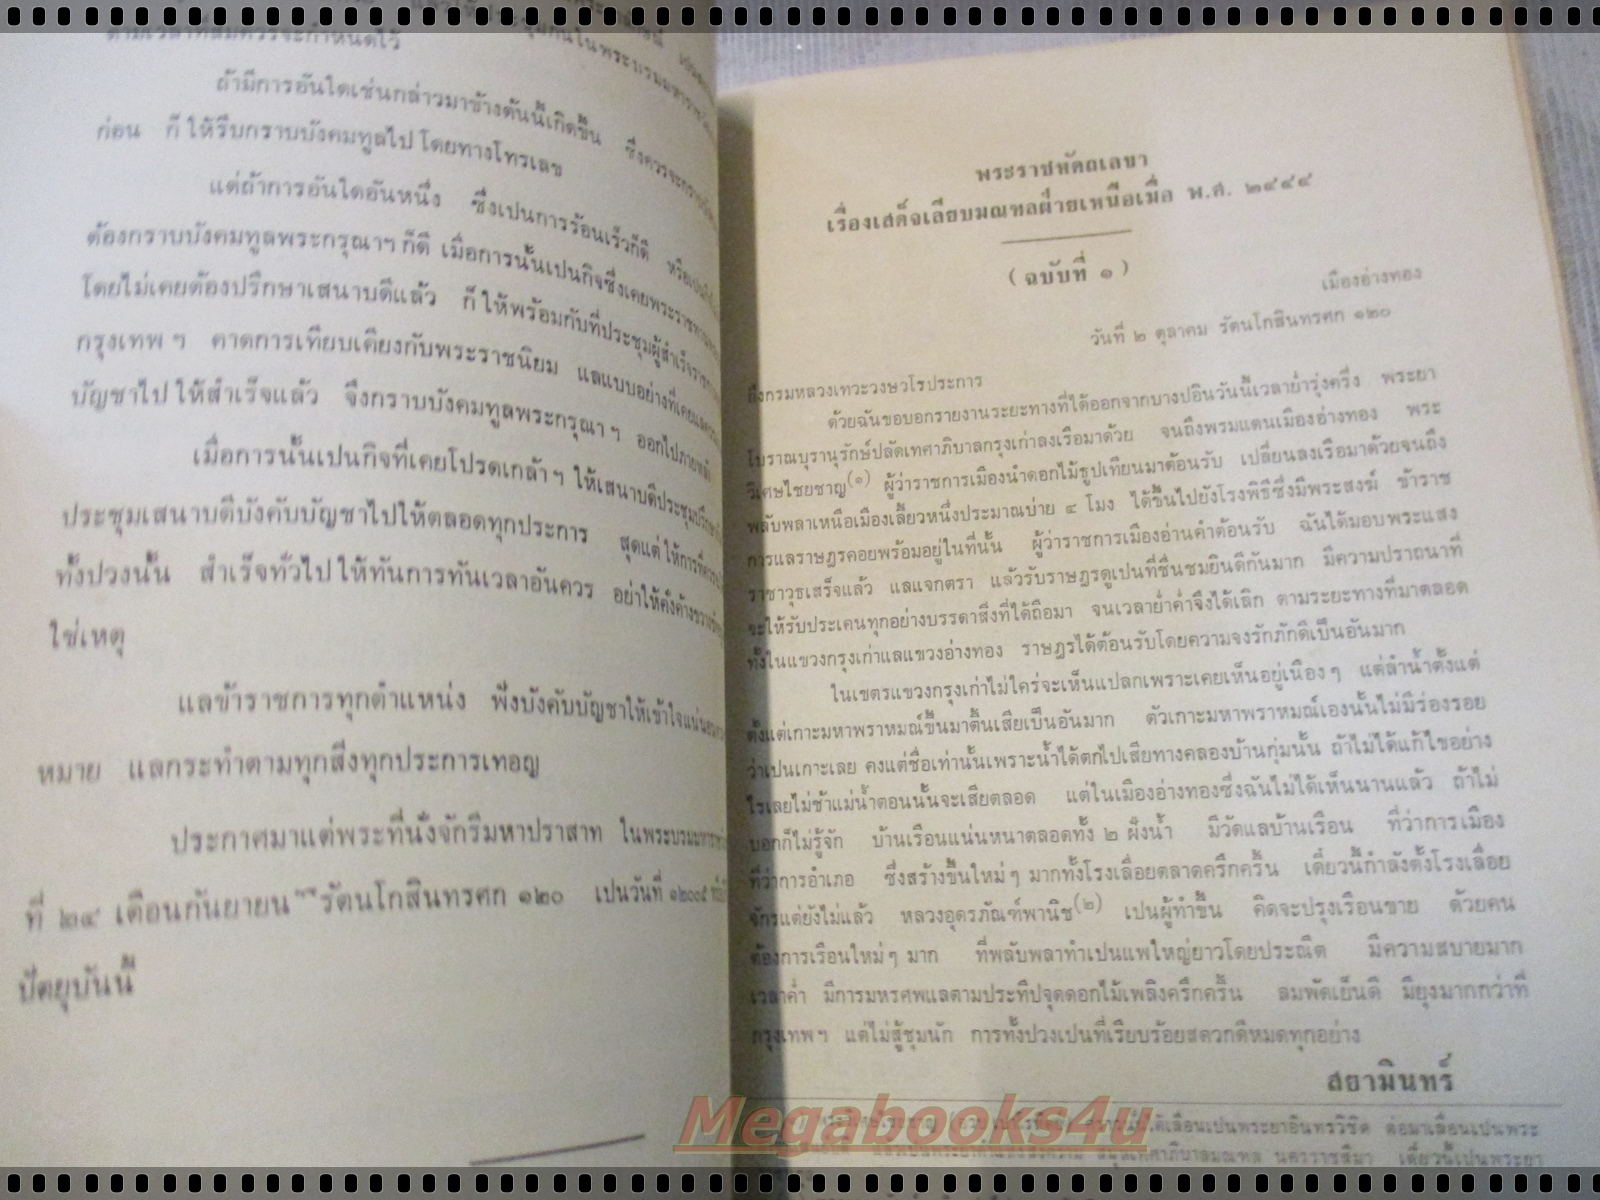 ตามเวลาที่สมควรจะกำหนดไว้
ถ้ามีการอันใดเช่นกล่าวมาข้างต้นนี้เกิดขึ้น ซึ่งควรจะกราบบังคม
ก่อน ก็ให้รีบกราบบังคมทูลไปโดยทางโทรเลข
แต่ถ้าการอันใดอันหนึ่ง ซึ่งเปนการร้อนเร็วก็ดี หรือเปน
ต้องกราบบังคมทูลพระกรุณาฯ ก็ดี เมื่อการนั้นเปนกิจซึ่งเคยพระราชทาน
โดยไม่เคยต้องปรึกษาเสนาบดีแล้ว ก็ให้พร้อมกับที่ประชุมผู้สำเร็จราชการ
กรุงเทพฯ คาดการเทียบเคียงกับพระราชนิยม แลแบบอย่างที่เคย
บัญชาไปให้สำเร็จแล้ว จึงกราบบังคมทูลพระกรุณาฯ ออกไปภายหลัง
เมื่อการนั้นเปนกิจที่เคยโปรดเกล้าฯ ให้เสนาบดีประชุมปรึกษา
ประชุมเสนาบดีบังคับบัญชาไปให้ตลอดทุกประการ สุดแต่ให้การที่ควร
ทั้งปวงนั้น สำเร็จทั่วไปให้ทันการทันเวลาอันควร อย่าให้คั่งค้างขวาง
ใช่เหตุ
แลข้าราชการทุกตำแหน่ง พึงบังคับบัญชาให้เข้าใจแน่นอน
หมาย แลกระทำตามทุกสิ่งทุกประการเทอญ
ประกาศมาแต่พระที่นั่งจักรีมหาปราสาท ในพระบรมมหาราชวัง
ที่ ๒๔ เดือนกันยายน รัตนโกสินทรศก ๑๒๐ เปนวันที่ ๑๒๐๐๔
ปัตยุบันนี้
พระราชหัตถเลขา
เรื่องเสด็จเลียบมณฑลฝ่ายเหนือเมื่อ พ.ศ. ๒๔๔๔
(ฉบับที่ ๑)
เมืองอ่างทอง
วันที่ ๒ ตุลาคม รัตนโกสินทรศก ๑๒๐
ถึงกรมหลวงเทวะวงษวโรประการ
ด้วยฉันขอบอกรายงานระยะทางที่ได้ออกจากบางปอินวันนี้เวลาย่ำรุ่งครึ่ง พระยา
โบราณบุรานุรักษ์ปลัดเทศาภิบาลกรุงเก่าลงเรือมาด้วย จนถึงพรมแดนเมืองอ่างทอง พระ
วิเศษไชยชาญ(๑) ผู้ว่าราชการเมืองนำดอกไม้ธูปเทียนมาต้อนรับ เปลี่ยนลงเรือมาด้วยจนถึง
พลับพลาเหนือเมืองเลี้ยวหนึ่งประมาณบ่าย ๔ โมง ได้ขึ้นไปยังโรงพิธีซึ่งมีพระสงฆ์ ข้าราช
การแลราษฎรคอยพร้อมอยู่ในที่นั้น ผู้ว่าราชการเมืองอ่านคำต้อนรับ ฉันได้มอบพระแสง
ราชาวุธเสร็จแล้ว แลแจกตรา แล้วรับราษฎรดูเปนที่ชื่นชมยินดีกันมาก มีความปราถนาที่
จะให้รับประเคนทุกอย่างบรรดาสิ่งที่ได้ถือมา จนเวลาย่ำค่ำจึงได้เลิก ตามระยะทางที่มาตลอด
ทั้งในแขวงกรุงเก่าแลแขวงอ่างทอง ราษฎรได้ต้อนรับโดยความจงรักภักดีเป็นอันมาก
ในเขตรแขวงกรุงเก่าไม่ใคร่จะเห็นแปลกเพราะเคยเห็นอยู่เนืองๆ แต่ลำน้ำตั้งแต่
ตั้งแต่เกาะมหาพราหมณ์ขึ้นมาตื้นเสียเป็นอันมาก ตัวเกาะมหาพราหมณ์เองนั้นไม่มีร่องรอย
ว่าเปนเกาะเลย คงแต่ชื่อเท่านั้นเพราะน้ำได้ตกไปเสียทางคลองบ้านกุ่มนั้น ถ้าไม่ได้แก้ไขอย่าง
ไรเลยไม่ช้าแม่น้ำตอนนั้นจะเสียตลอด แต่ในเมืองอ่างทองซึ่งฉันไม่ได้เห็นนานแล้ว ถ้าไม่
บอกก็ไม่รู้จัก บ้านเรือนแน่นหนาตลอดทั้ง ๒ ฝั่งน้ำ มีวัดแลบ้านเรือน ที่ว่าการเมือง
ที่ว่าการอำเภอ ซึ่งสร้างขึ้นใหม่ๆ มากทั้งโรงเลื่อยตลาดครึกครื้น เดี๋ยวนี้กำลังตั้งโรงเลื่อย
จักรแต่ยังไม่แล้ว หลวงอุดรภัณฑ์พานิช(๒) เปนผู้ทำขึ้น คิดจะปรุงเรือนขาย ด้วยคน
ต้องการเรือนใหม่ๆ มาก ที่พลับพลาทำเปนแพใหญ่ยาวโดยประณีต มีความสบายมาก
เวลาค่ำ มีการมหรศพแลตามประทีปจุดดอกไม้เพลิงครึกครื้น ลมพัดเย็นดี มียุงมากกว่าที่
กรุงเทพฯ แต่ไม่สู้ชุมนัก การทั้งปวงเปนที่เรียบร้อยสดวกดีหมดทุกอย่าง
สยามินทร์
ได้เลื่อนเปนพระยาอินทรวิชิต ต่อมาเลื่อนเปนพระ
สมุหเทศาภิบาลมณฑล นครราชสีมา เดี๋ยวนี้เปนพระยา
Megabooks4u